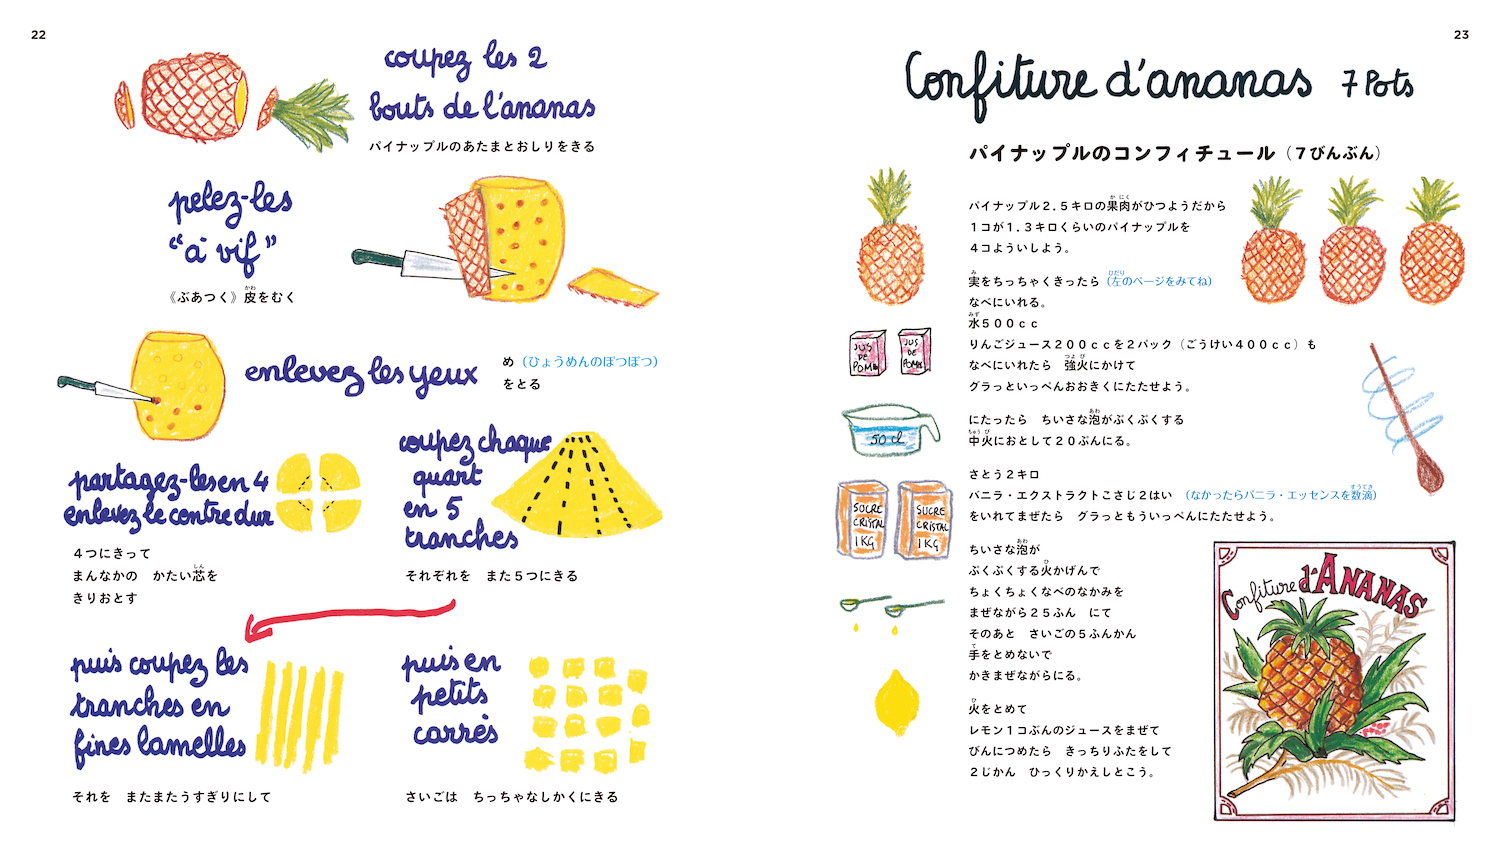 22
coupez les 2
bouts de l'ananas
パイナップルのあたまとおしりをきる
pelez-les
"à vif"
《ぶあつく》皮をむく
かわ
enlevez les yeux
め（ひょうめんのぽつぽつ）
をとる
partagez-les en 4
enlevez le contre dur
4つにきって
まんなかの　かたい芯を
しん
きりおとす
coupez chaque
quart
en 5
tranches
それぞれを　また５つにきる
puis coupez les
tranches en
fines lamelles
それを　またまたうすぎりにして
puis en
petits
carrés
さいごは　ちっちゃなしかくにきる
23
Confiture d'ananas 7 Pots
パイナップルのコンフィチュール（７びんぶん）
パイナップル２.５キロの果肉がひつようだから
か にく
１コが１.３キロくらいのパイナップルを
４コよういしよう。
実をちっちゃくきったら（左のページをみてね）
み
ひだり
なべにいれる。
水５００ｃｃ
みず
りんごジュース２００ｃｃを２パック（ごうけい４００ｃｃ）も
なべにいれたら　強火にかけて
つよ び
グラっといっぺんおおきくにたたせよう。
にたったら　ちいさな泡がぷくぷくする
あわ
中火におとして２０ぷんにる。
ちゅう び
さとう２キロ
バニラ・エクストラクトこさじ２はい　（なかったらバニラ・エッセンスを数滴）
すうてき
をいれてまぜたら　グラっともういっぺんにたたせよう。
ちいさな泡が
あわ
ぷくぷくする火かげんで
ひ
ちょくちょくなべのなかみを
まぜながら２５ふん　にて
そのあと　さいごの５ふんかん
手をとめないで
て
かきまぜながらにる。
火をとめて
ひ
レモン１コぶんのジュースをまぜて
びんにつめたら　きっちりふたをして
２じかん　ひっくりかえしとこう。
JUS
DE
POMME
JUS
DE
POMME
50 cl
SUCRE
CRISTAL
1KG
SUCRE
CRISTAL
1KG
Confiture d'ANANAS